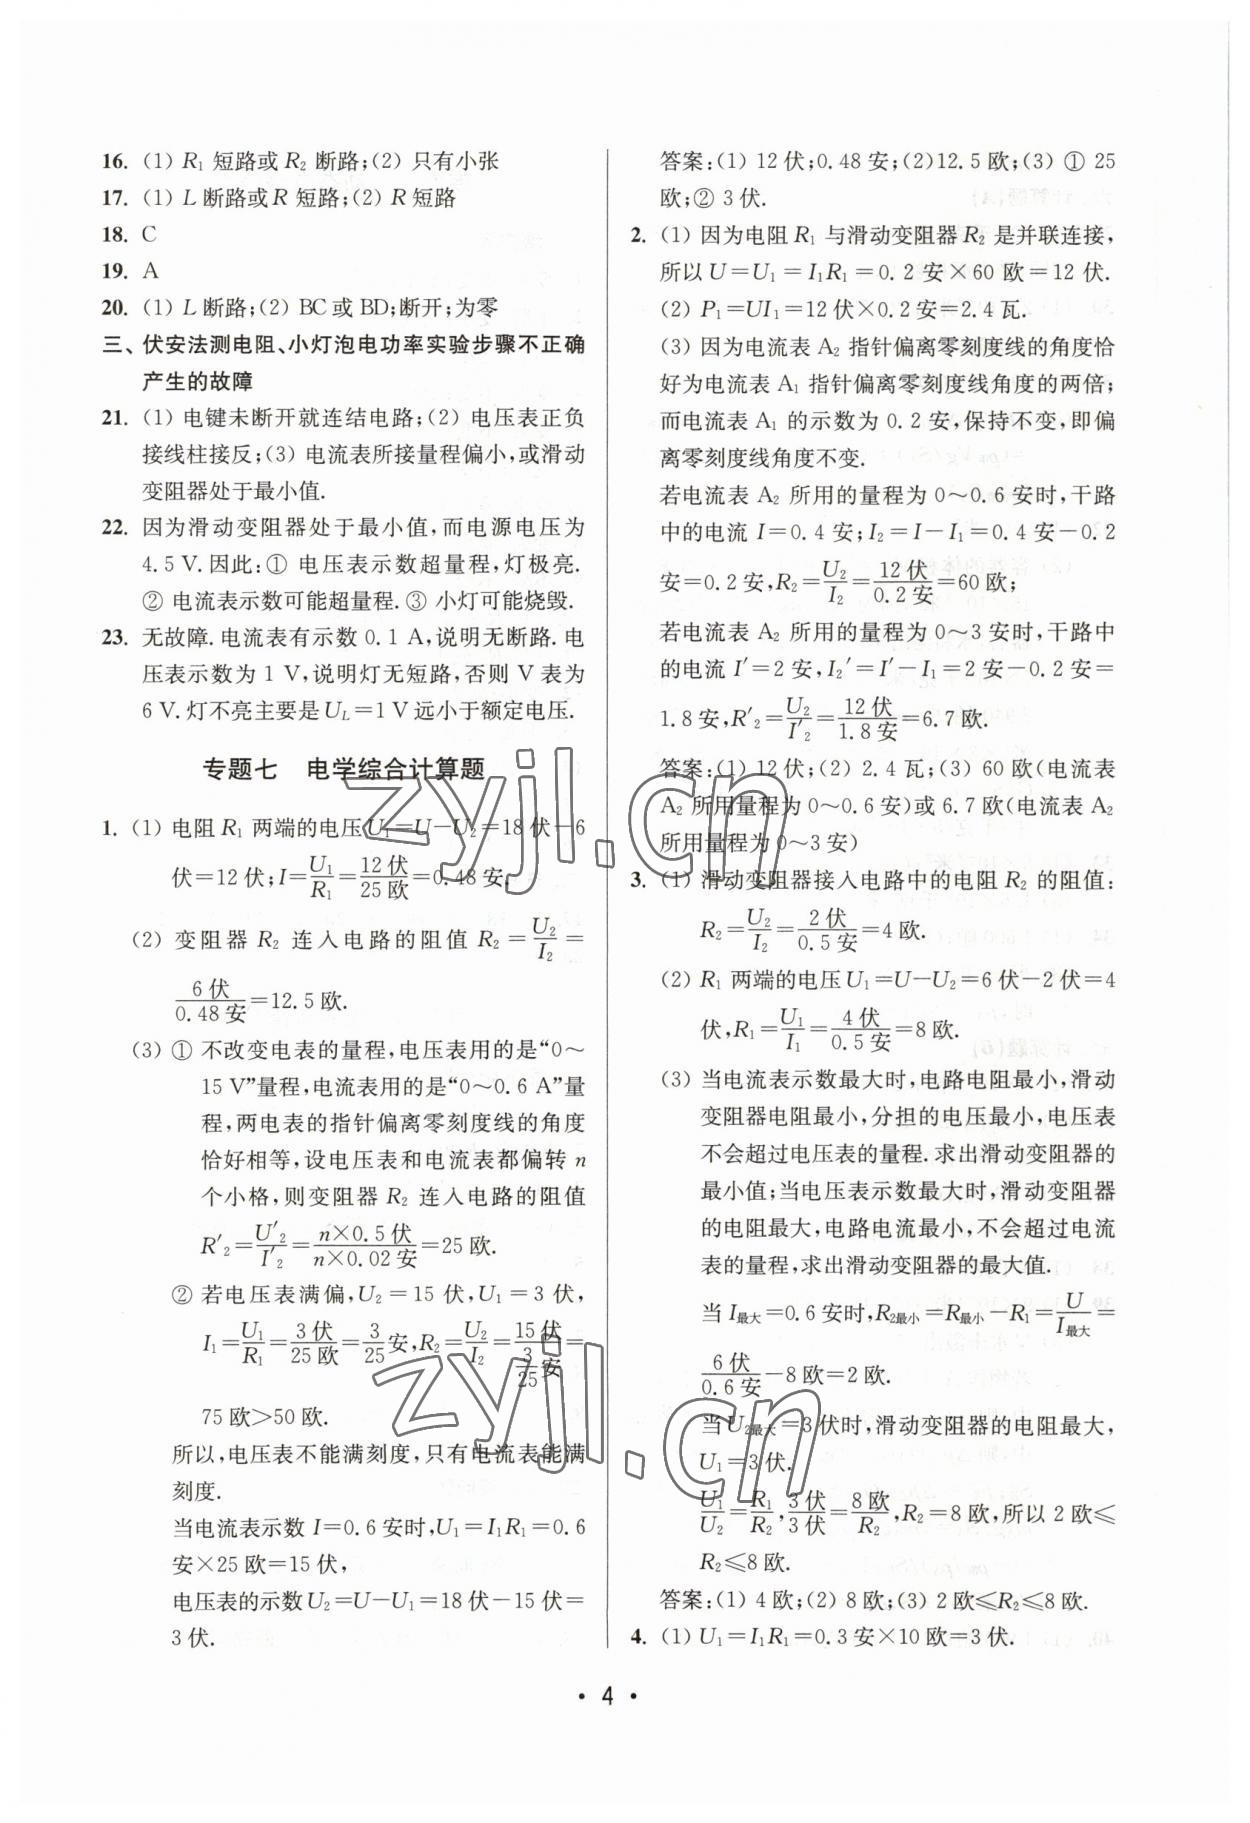 16. (1) R₁ 短路或 R₂ 断路;(2) 只有小张
17. (1) L 断路或 R 短路;(2) R 短路
18. C
19. A
20. (1) L 断路;(2) BC 或 BD;断开;为零
三、伏安法测电阻、小灯泡电功率实验步骤不正确
产生的故障
21. (1) 电键未断开就连结电路;(2) 电压表正负
接线柱接反;(3) 电流表所接量程偏小,或滑动
变阻器处于最小值.
22. 因为滑动变阻器处于最小值,而电源电压为
4.5 V. 因此:① 电压表示数超量程,灯极亮.
② 电流表示数可能超量程. ③ 小灯可能烧毁.
23. 无故障. 电流表有示数 0.1 A,说明无断路. 电
压表示数为 1 V,说明灯无短路,否则 V 表为
6 V. 灯不亮主要是 U_L=1 V 远小于额定电压.
专题七 电学综合计算题
1. (1) 电阻 R₁ 两端的电压 U₁=U-U₂=18 伏-6
伏=12 伏;I=U₁/R₁=12 伏/25 欧=0.48 安.
(2) 变阻器 R₂ 连入电路的阻值 R₂=U₂/I₂=
6 伏/0.48 安=12.5 欧.
(3) ① 不改变电表的量程,电压表用的是“0～
15 V”量程,电流表用的是“0～0.6 A”量
程,两电表的指针偏离零刻度线的角度
恰好相等,设电压表和电流表都偏转 n
个小格,则变阻器 R₂ 连入电路的阻值
R′₂=U′₂/I′₂=n×0.5 伏/n×0.02 安=25 欧.
② 若电压表满偏,U₂=15 伏,U₁=3 伏,
I₁=U₁/R₁=3 伏/25 欧=3/25 安,R₂=U₂/I₂=15 伏/(3/25 安)=
75 欧>50 欧.
所以,电压表不能满刻度,只有电流表能满
刻度.
当电流表示数 I=0.6 安时,U₁=I₁R₁=0.6
安×25 欧=15 伏,
电压表的示数 U₂=U-U₁=18 伏-15 伏=
3 伏.
答案:(1) 12 伏;0.48 安;(2)12.5 欧;(3) ① 25
欧;② 3 伏.
2. (1) 因为电阻 R₁ 与滑动变阻器 R₂ 是并联连接,
所以 U=U₁=I₁R₁=0.2 安×60 欧=12 伏.
(2) P₁=UI₁=12 伏×0.2 安=2.4 瓦.
(3) 因为电流表 A₂ 指针偏离零刻度线的角度恰
好为电流表 A₁ 指针偏离零刻度线角度的两倍;
而电流表 A₁ 的示数为 0.2 安,保持不变,即偏
离零刻度线角度不变.
若电流表 A₂ 所用的量程为 0～0.6 安时,干路
中的电流 I=0.4 安;I₂=I-I₁=0.4 安-0.2
安=0.2 安,R₂=U₂/I₂=12 伏/0.2 安=60 欧;
若电流表 A₂ 所用的量程为 0～3 安时,干路中
的电流 I′=2 安,I₂′=I′-I₁=2 安-0.2 安=
1.8 安,R′₂=U₂/I′₂=12 伏/1.8 安=6.7 欧.
答案:(1) 12伏;(2) 2.4 瓦;(3) 60 欧(电流表
A₂ 所用量程为 0～0.6 安)或 6.7 欧(电流表 A₂
所用量程为 0～3 安)
3. (1) 滑动变阻器接入电路中的电阻 R₂ 的阻值:
R₂=U₂/I₂=2 伏/0.5 安=4 欧.
(2) R₁ 两端的电压 U₁=U-U₂=6 伏-2 伏=4
伏,R₁=U₁/I₁=4 伏/0.5 安=8 欧.
(3) 当电流表示数最大时,电路电阻最小,滑动
变阻器电阻最小,分担的电压最小,电压表
不会超过电压表的量程. 求出滑动变阻器的
最小值;当电压表示数最大时,滑动变阻器
的电阻最大,电路电流最小,不会超过电流
表的量程,求出滑动变阻器的最大值.
当 I最大=0.6 安时,R₂最小=R最小-R₁=U/I最大=
6 伏/0.6 安-8 欧=2 欧.
当 U₂最大=3 伏时,滑动变阻器的电阻最大,
U₁=3 伏.
U₁/U₂=R₁/R₂,3 伏/3 伏=8 欧/R₂,R₂=8 欧,所以 2 欧⩽
R₂⩽8 欧.
答案:(1) 4 欧;(2) 8 欧;(3) 2 欧⩽R₂⩽8 欧.
4. (1) U₁=I₁R₁=0.3 安×10 欧=3 伏.
· 4 ·
zyjl.cn
zyjl.cn